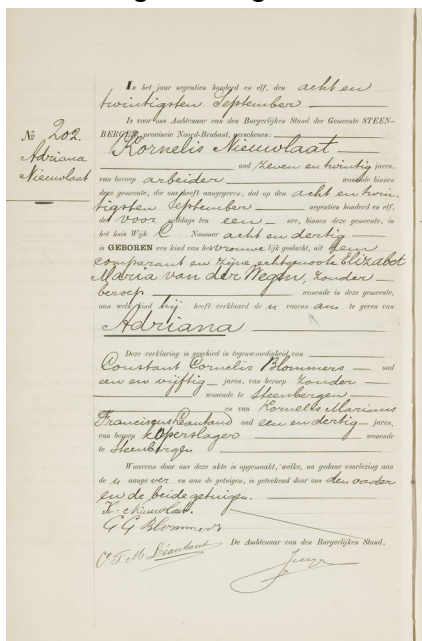 In het jaar negentien honderd en elf, den acht en
twintigsten September
Is voor ons Ambtenaar van den Burgerlijken Stand der Gemeente STEEN-
BERGEN, provincie Noord-Brabant, verschenen:
No 202.
Adriana
Nieuwlaat
Kornelis Nieuwlaat
oud zeven en twintig jaren,
van beroep arbeider wonende binnen
deze gemeente, die ons heeft aangegeven, dat op den acht en twin-
tigsten September negentien honderd en elf,
des voor middags ten een ure, binnen deze gemeente, in
het huis Wijk C Nummer acht en dertig
is GEBOREN een kind van het vrouwe lijk geslacht, uit hem
comparant en zijne echtgenoote Elizabet
Maria van der Wegen, zonder
beroep wonende in deze gemeente,
aan welk kind hij heeft verklaard de n voornaam te geven van
Adriana
Deze verklaring is geschied in tegenwoordigheid van
Constant Cornelis Blommers oud
een en vijftig jaren, van beroep zonder
wonende te Steenbergen
en van Kornelis Marinus
Franciscus oud een en dertig jaren,
van beroep koperslager wonende
te Steenbergen
Waarvan door ons deze akte is opgemaakt, welke, na gedane voorlezing aan
de n aangever en aan de getuigen, is geteekend door ons den vader
en de beide getuigen.
K. Nieuwlaat.
Blommers
De Ambtenaar van den Burgerlijken Stand,